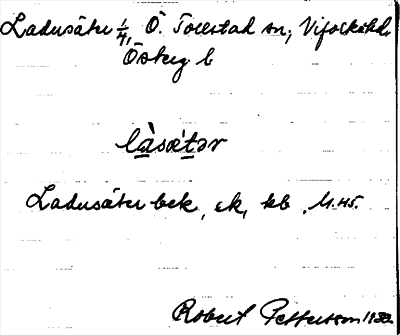 Ladusäter 1/4, Ö. Tollstad sn, Vifolkahd.
Östserg l
làsætər
Ladusäter bek, ek, kb. M.45.
Robert Pettersson 1932